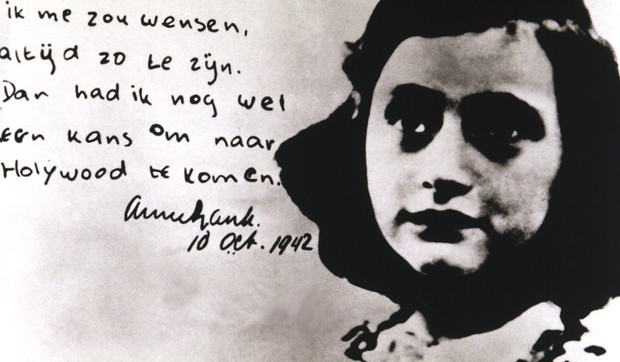 ik me zou wensen,
altijd zo te zijn.
Dan had ik nog wel
een kans om naar
Holywood te komen.
Anne Frank.
10 Oct. 1942